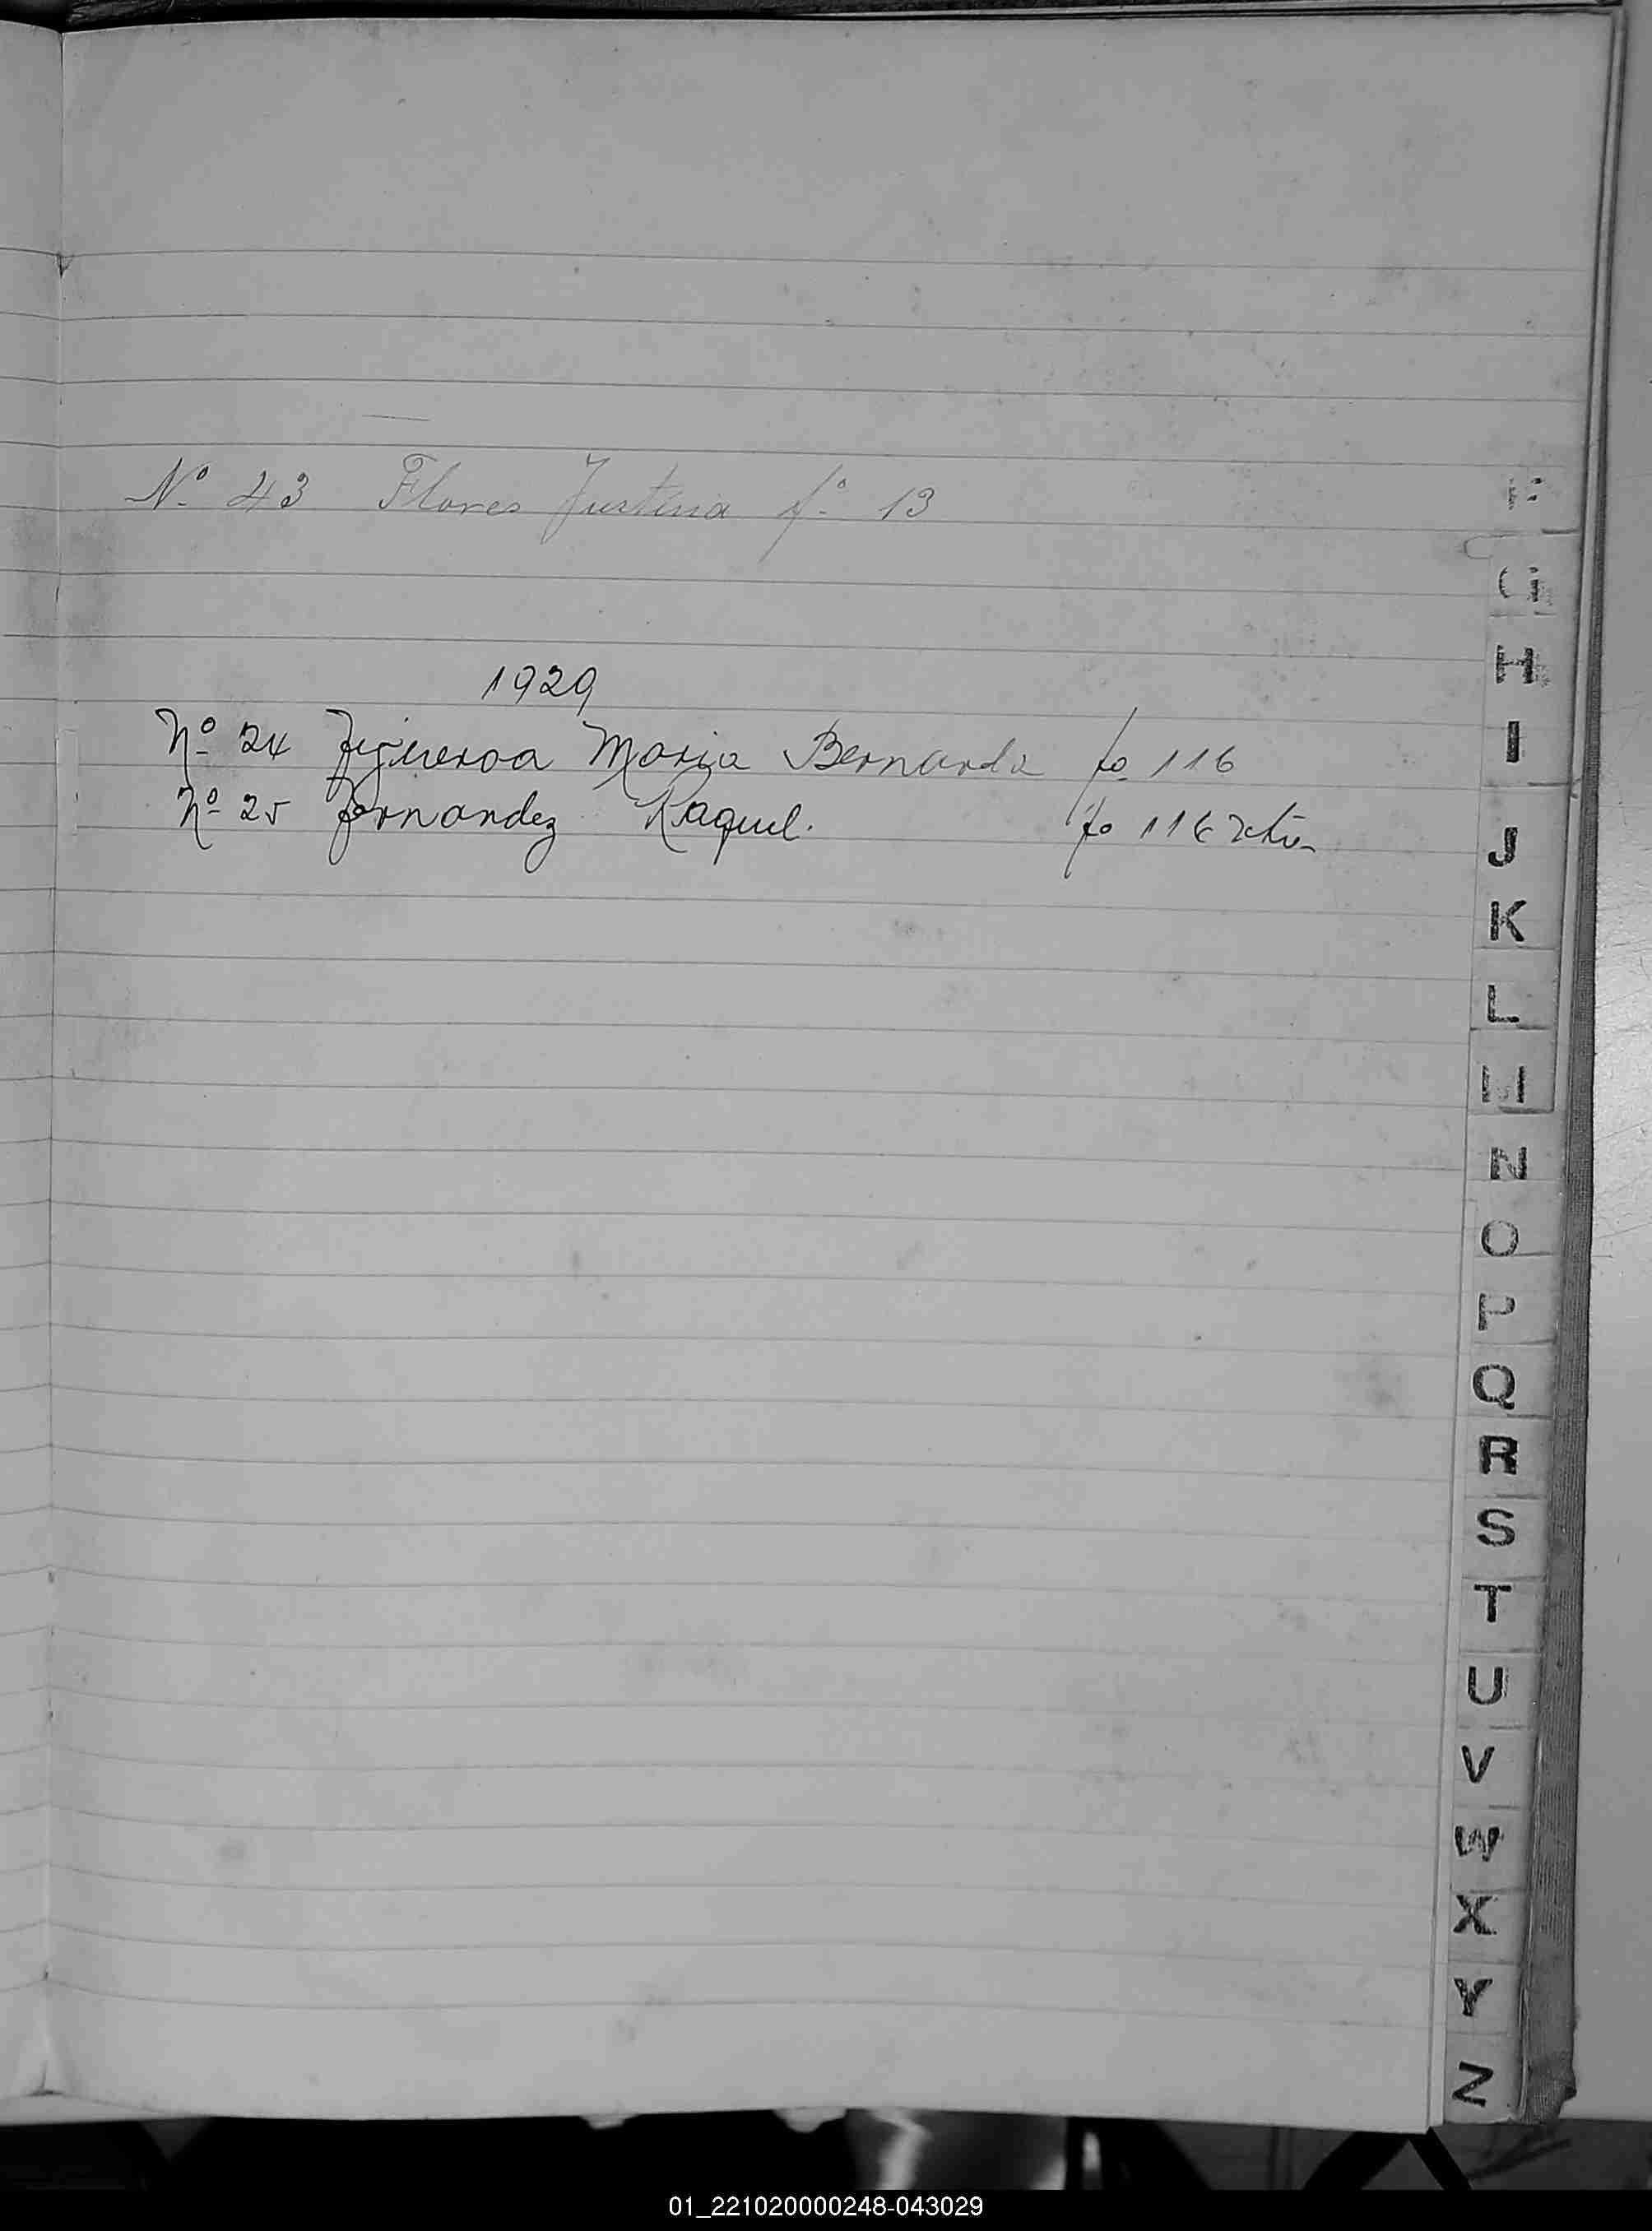 Nº 43 Flores Justina fº 13
1929
Nº 24 Figueroa Maria Bernarda fo 116
Nº 25 Fernandez Raquel. fo 116
F
G
H
I
J
K
L
M
N
O
P
Q
R
S
T
U
V
W
X
Y
Z
01_221020000248-043029